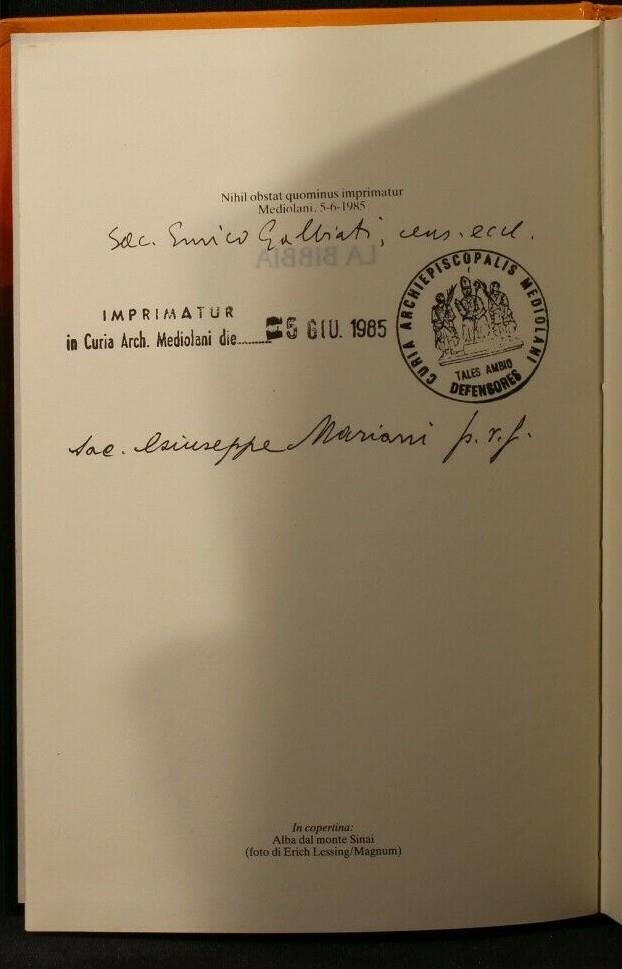 Nihil obstat quominus imprimatur
Mediolani, 5-6-1985
Sac. Enrico Galbiati, cens. eccl.
LA BIBBIA
IMPRIMATUR
in Curia Arch. Mediolani die.......... 5 GIU. 1985
CURIA ARCHIEPISCOPALIS MEDIOLANI
TALES AMBIO
DEFENSORES
sac. Giuseppe Mariani p.v.g.
In copertina:
Alba dal monte Sinai
(foto di Erich Lessing/Magnum)